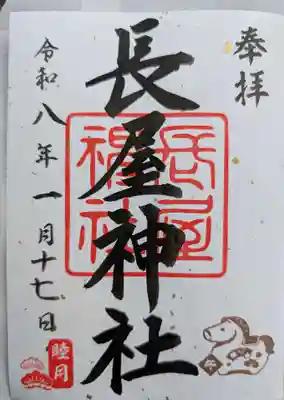 奉拝
長屋神社
長屋
神社
令和八年一月十七日
睦月
午